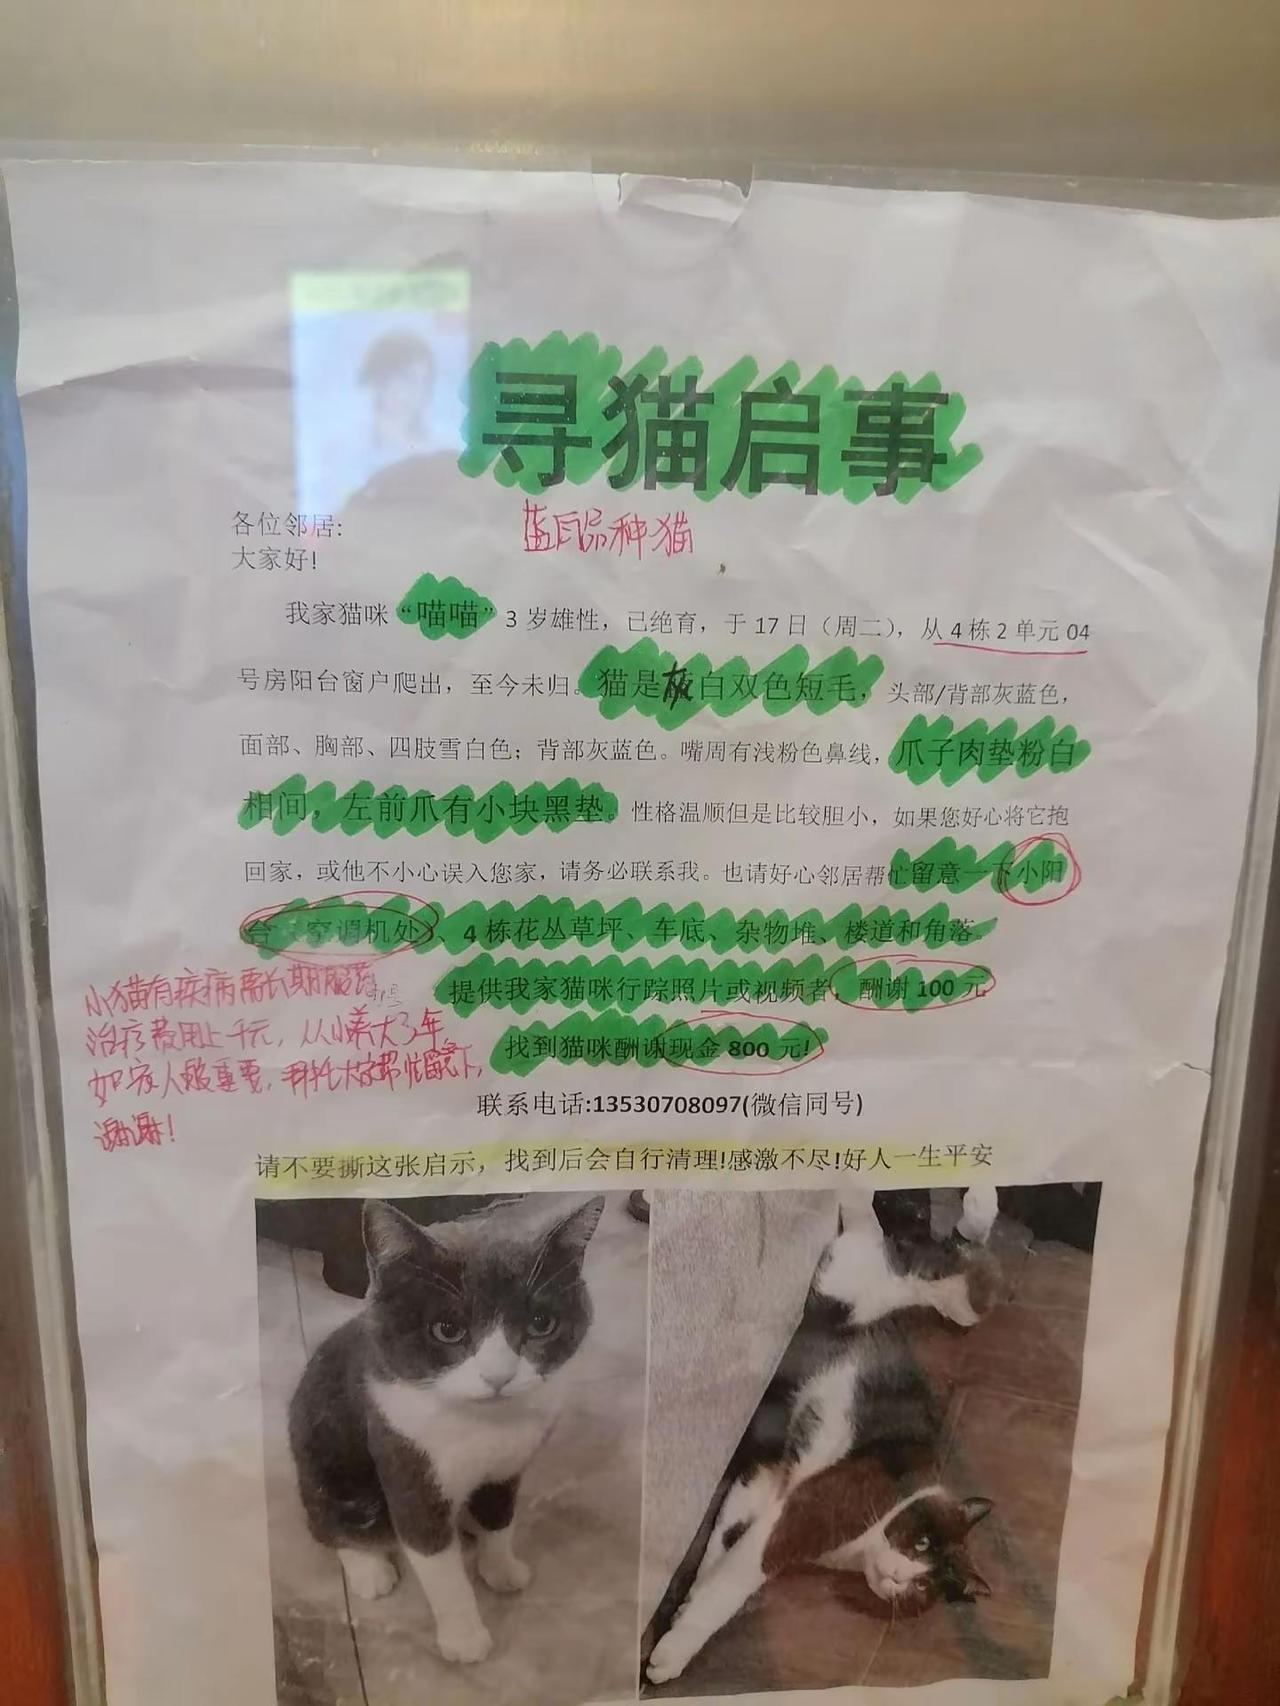 寻猫启事
各位邻居:
蓝白品种猫
大家好!
我家猫咪“喵喵”3岁雄性，已绝育，于17日（周二），从4栋2单元04
号房阳台窗户爬出，至今未归。猫是灰白双色短毛，头部/背部灰蓝色，
面部、胸部、四肢雪白色；背部灰蓝色。嘴周有浅粉色鼻线，爪子肉垫粉白
相间，左前爪有小块黑垫。性格温顺但是比较胆小，如果您好心将它抱
回家，或他不小心误入您家，请务必联系我。也请好心邻居帮忙留意一下小阳
台、空调机处、4栋花丛草坪、车底、杂物堆、楼道和角落。
提供我家猫咪行踪照片或视频者，酬谢100元
找到猫咪酬谢现金800元!
小猫有疾病需长期服药
治疗费用上千元，从小养大3年
如家人般重要，拜托大家帮忙留意下，
谢谢!
联系电话:13530708097(微信同号)
请不要撕这张启示，找到后会自行清理!感激不尽!好人一生平安